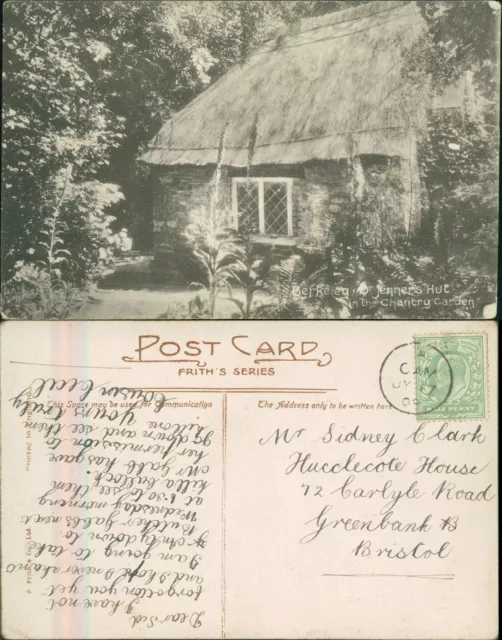 Berkeley. Dr Jenner's Hut
in the Chantry Garden.
POST CARD
FRITH'S SERIES
This Space may be used for Communication
The Address only to be written here
Mr Sidney Clark
Hucclecote House
72 Carlyle Road
Greenbank
Bristol
Dear Sid
I have not
forgotten you yet
and I hope I never shall
I am going to take
down to
Butcher Gabbs next
Wednesday morning
at 8-30 to see them
kill a bullock
Mr Gabb has gave
her permission to
go down and see them
kill one
yours truly
Cousin Cecil
Printed in
AM
JY
PENNY